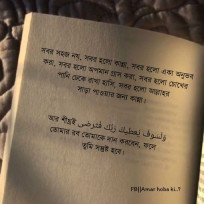 সবর সহজ নয়, সবর হলো কান্না, সবর হলো একা অনুভব
করা, সবর হলো অপমান গ্রাস করা, সবর হলো চোখের
পানি ঢেকে রাখা হাসি, সবর হলো আল্লাহর
সাড়া পাওয়ার জন্য কান্না।
وَلَسَوْفَ يُعْطِيكَ رَبُّكَ فَتَرْضَىٰ আর শীঘ্রই
তোমার রব তোমাকে দান করবেন, ফলে
তুমি সন্তুষ্ট হবে।
FB||Amar hoba ki..?